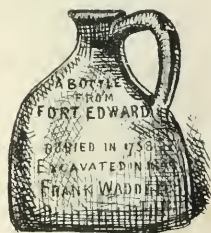 A BOTTLE
FROM
FORT EDWARD
BURIED IN 1758
EXCAVATED IN
FRANK